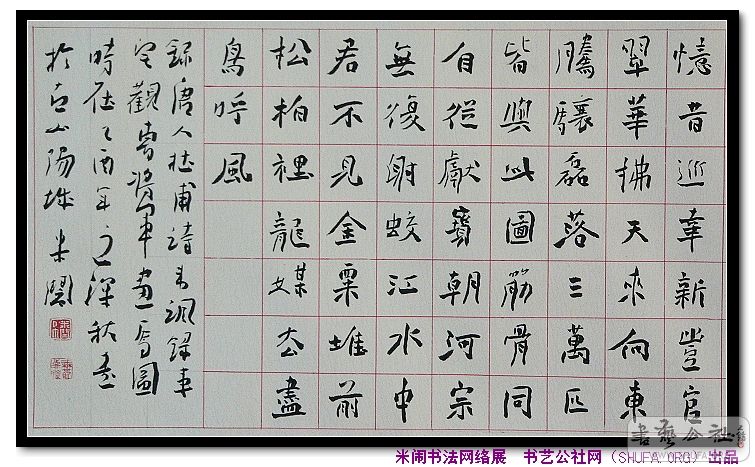 憶昔巡幸新豐宮
翠華拂天來向東
騰驤磊落三萬匹
皆與此圖筋骨同
自從獻寶朝河宗
無復射蛟江水中
君不見金粟堆前
松柏裡龍媒去盡
鳥呼風
錄唐人杜甫詩韋諷錄事
宅觀曹將軍畫馬圖
時在乙酉年之深秋書
於山陽城 米鬧
書藝公社
米闹书法网络展 书艺公社网（SHUFA.ORG）出品